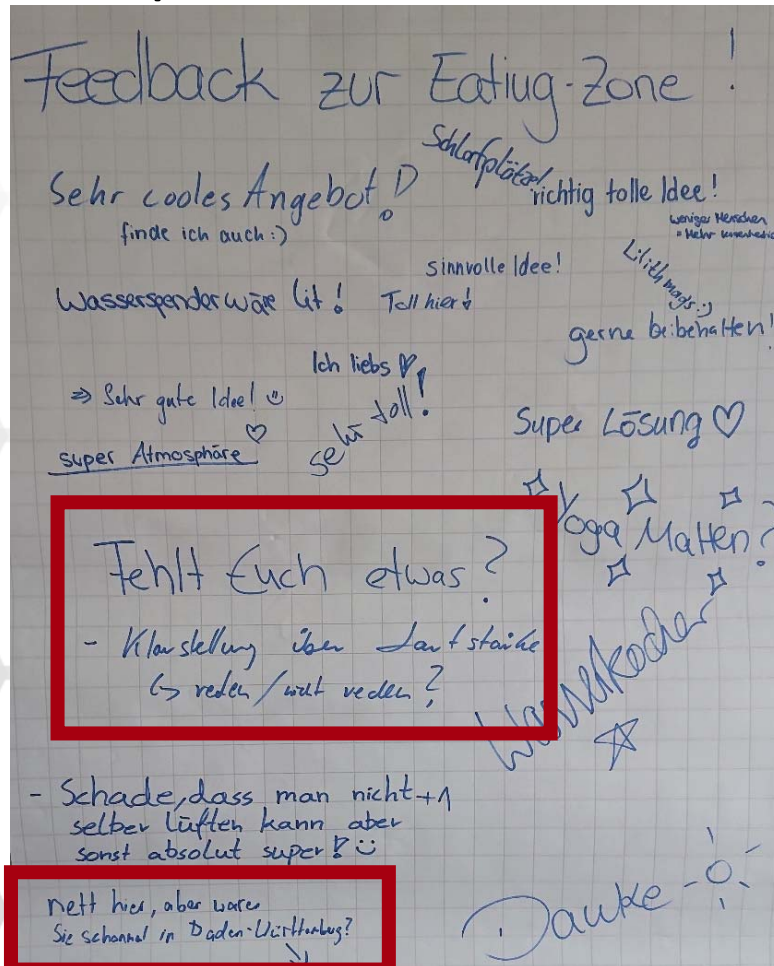 Feedback zur Eating-Zone !
Schlafplätze!
Sehr cooles Angebot!
finde ich auch :)
richtig tolle Idee!
weniger Menschen
= Mehr
sinnvolle Idee!
Lilith mags :)
Wasserspender wäre lit!
Toll hier!
gerne beibehalten!
Ich liebs ♡!
=> Sehr gute Idee! ☺
sehr toll!
Super Lösung ♡
super Atmosphäre ♡
Yoga Matten?
Fehlt Euch etwas?
- Klarstellung über Lautstärke
↳ reden / nicht reden?
Wasserkocher
- Schade, dass man nicht +1
selber lüften kann aber
sonst absolut super! ☺
nett hier, aber waren
Sie schonmal in Baden-Württemberg?
Danke